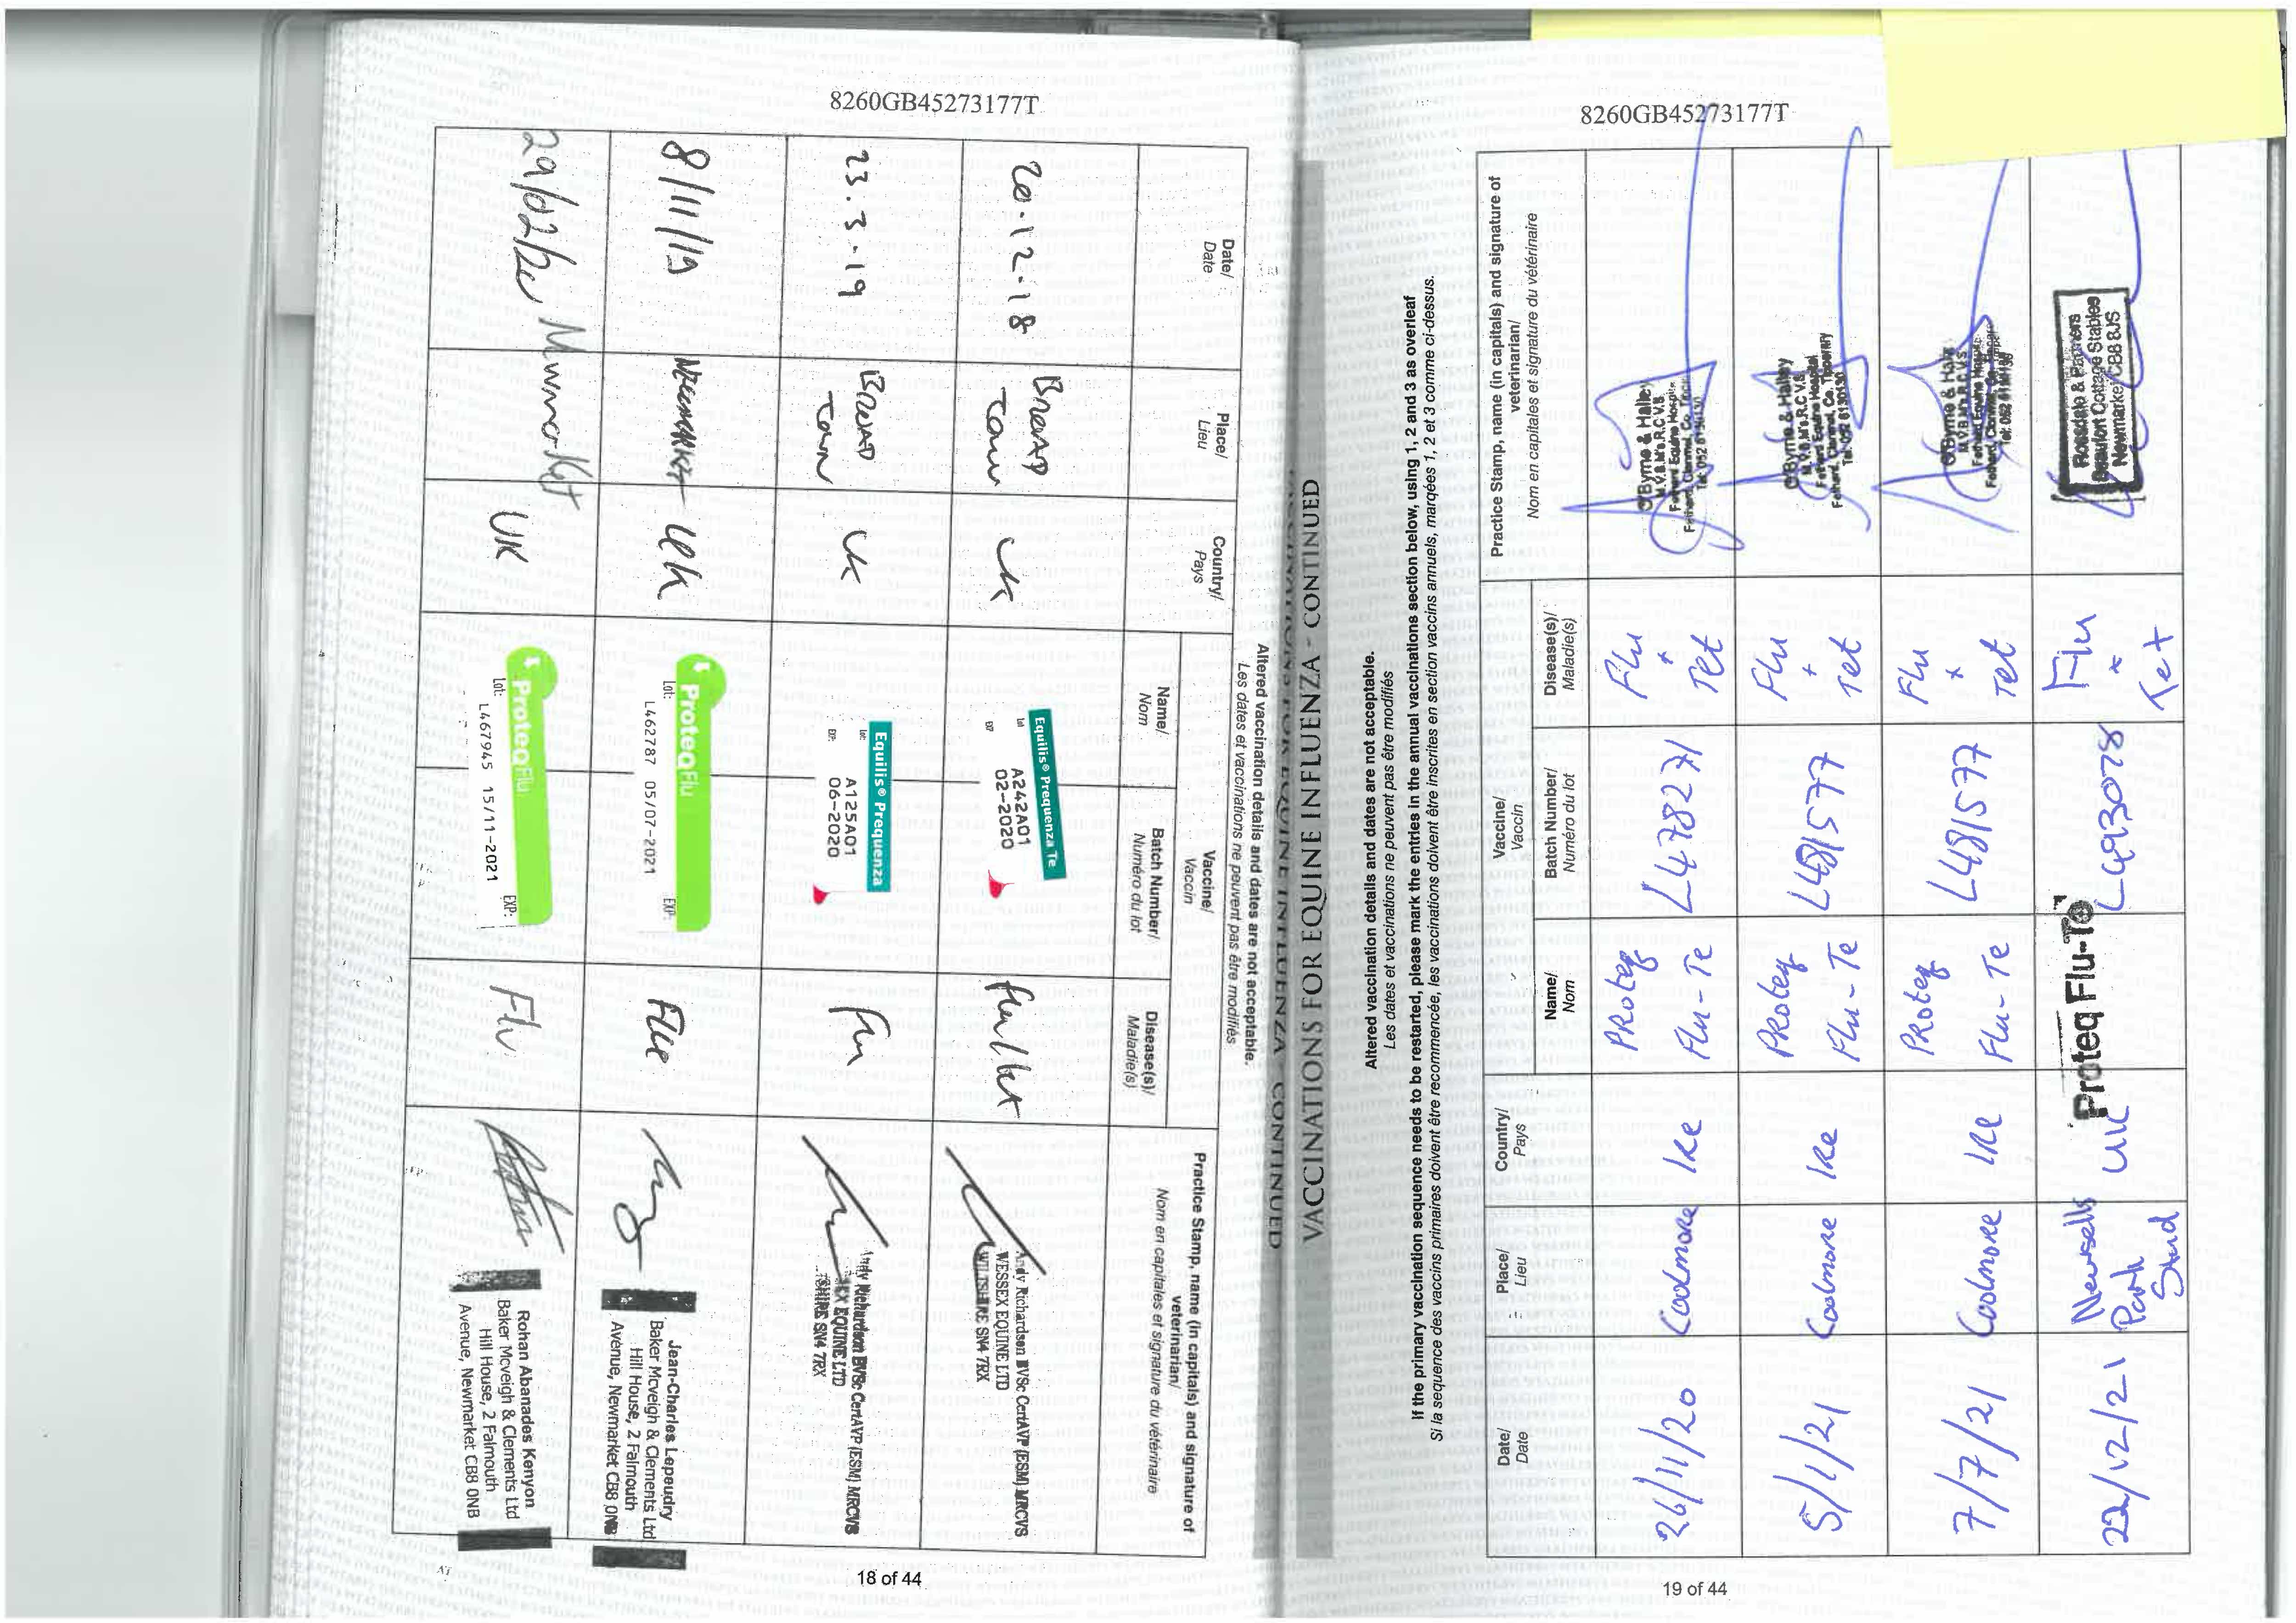 8260GB45273177T
VACCINATIONS FOR EQUINE INFLUENZA - CONTINUED
Altered vaccination details and dates are not acceptable.
Les dates et vaccinations ne peuvent pas être modifiés
Date/
Date
Place/
Lieu
Country/
Pays
Vaccine/
Vaccin
Name/
Nom
Batch Number/
Numéro du lot
Disease(s)/
Maladie(s)
Practice Stamp, name (in capitals) and signature of
veterinarian/
Nom en capitales et signature du vétérinaire
20-12-18
Broad
Town
UK
Equilis® Prequenza Te
Lot A242A01
EXP 02-2020
flu/tet
Andy Richardson BVSc CertAVP (ESM) MRCVS
WESSEX EQUINE LTD
WILTSHIRE SN4 7RX
23.3-19
Broad
Town
UK
Equilis® Prequenza
Lot: A125A01
EXP: 06-2020
flu
Andy Richardson BVSc CertAVP (ESM) MRCVS
EQUINE LTD
SHIRE SN4 7RX
8/11/19
Newmarket
UK
ProteqFlu
Lot: L462787 05/07-2021 EXP:
Flu
Jean-Charles Lepeudry
Baker Mcveigh & Clements Ltd
Hill House, 2 Falmouth
Avenue, Newmarket CB8 0NB
29/02/20
Newmarket
UK
ProteqFlu
Lot: L467945 15/11-2021 EXP:
Flu
Rohan Abanades Kenyon
Baker Mcveigh & Clements Ltd
Hill House, 2 Falmouth
Avenue, Newmarket CB8 0NB
18 of 44
8260GB45273177T
VACCINATIONS FOR EQUINE INFLUENZA - CONTINUED
Altered vaccination details and dates are not acceptable.
Les dates et vaccinations ne peuvent pas être modifiés
If the primary vaccination sequence needs to be restarted, please mark the entries in the annual vaccinations section below, using 1, 2 and 3 as overleaf
Si la sequence des vaccins primaires doivent être recommencée, les vaccinations doivent être inscrites en section vaccins annuels, marqées 1, 2 et 3 comme ci-dessus.
Date/
Date
Place/
Lieu
Country/
Pays
Vaccine/
Vaccin
Name/
Nom
Batch Number/
Numéro du lot
Disease(s)/
Maladie(s)
Practice Stamp, name (in capitals) and signature of
veterinarian/
Nom en capitales et signature du vétérinaire
26/11/20
Coolmore
Ire
Proteq
Flu-Te
L478271
Flu
+
Tet
O'Byrne & Halley
M.V.B. M's.R.C.V.S.
Fethard Equine Hospital
Fethard, Clonmel, Co. Tipperary
Tel: 052 6130130
5/1/21
Coolmore
Ire
Proteq
Flu-Te
L481577
Flu
+
Tet
O'Byrne & Halley
M.V.B. M's.R.C.V.S.
Fethard Equine Hospital
Fethard, Clonmel, Co. Tipperary
Tel: 052 6130130
7/7/21
Coolmore
Ire
Proteq
Flu-Te
L481577
Flu
+
Tet
O'Byrne & Halley
M.V.B. M's.R.C.V.S.
Fethard Equine Hospital
22/12/21
Newsells
Park
Stud
UK
Proteq Flu-Te
L493078
Flu
+
Tet
Rossdale & Partners
Beaufort Cottage Stables
Newmarket CB8 8JS
19 of 44